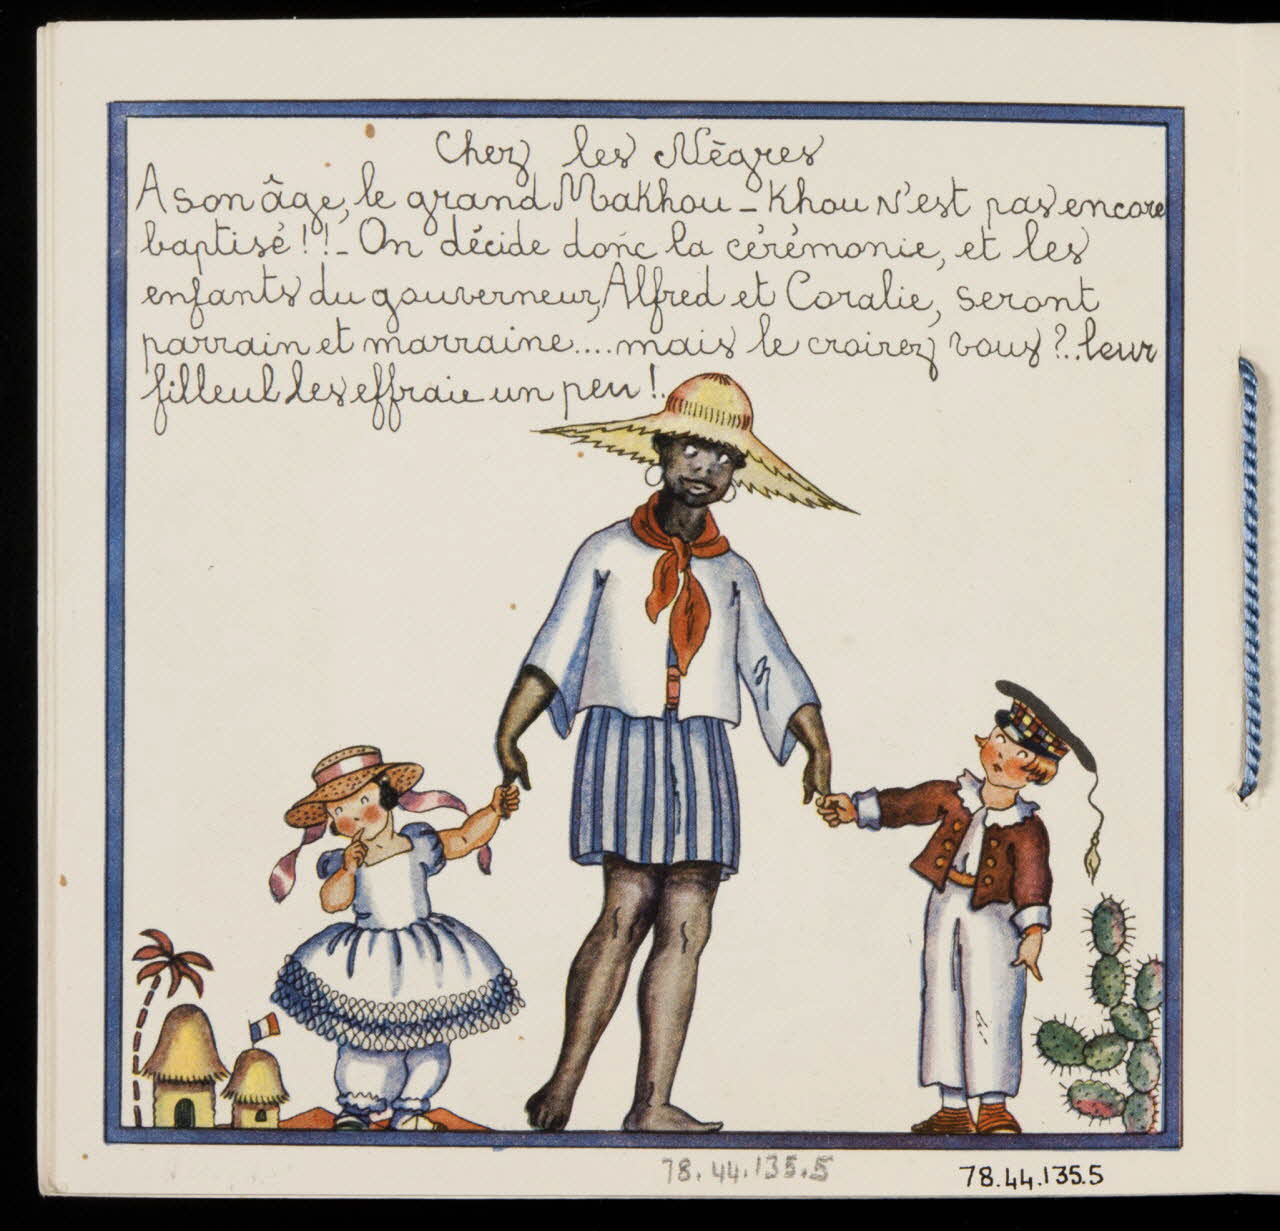 Chez les Nègres
A son âge, le grand Makhou-Khou n'est pas encore
baptisé!!- On décide donc la cérémonie, et les
enfants du gouverneur, Alfred et Coralie, seront
parrain et marraine....mais le croirez vous?..leur
filleul les effraie un peu!.
78.44.135.5
78.44.135.5